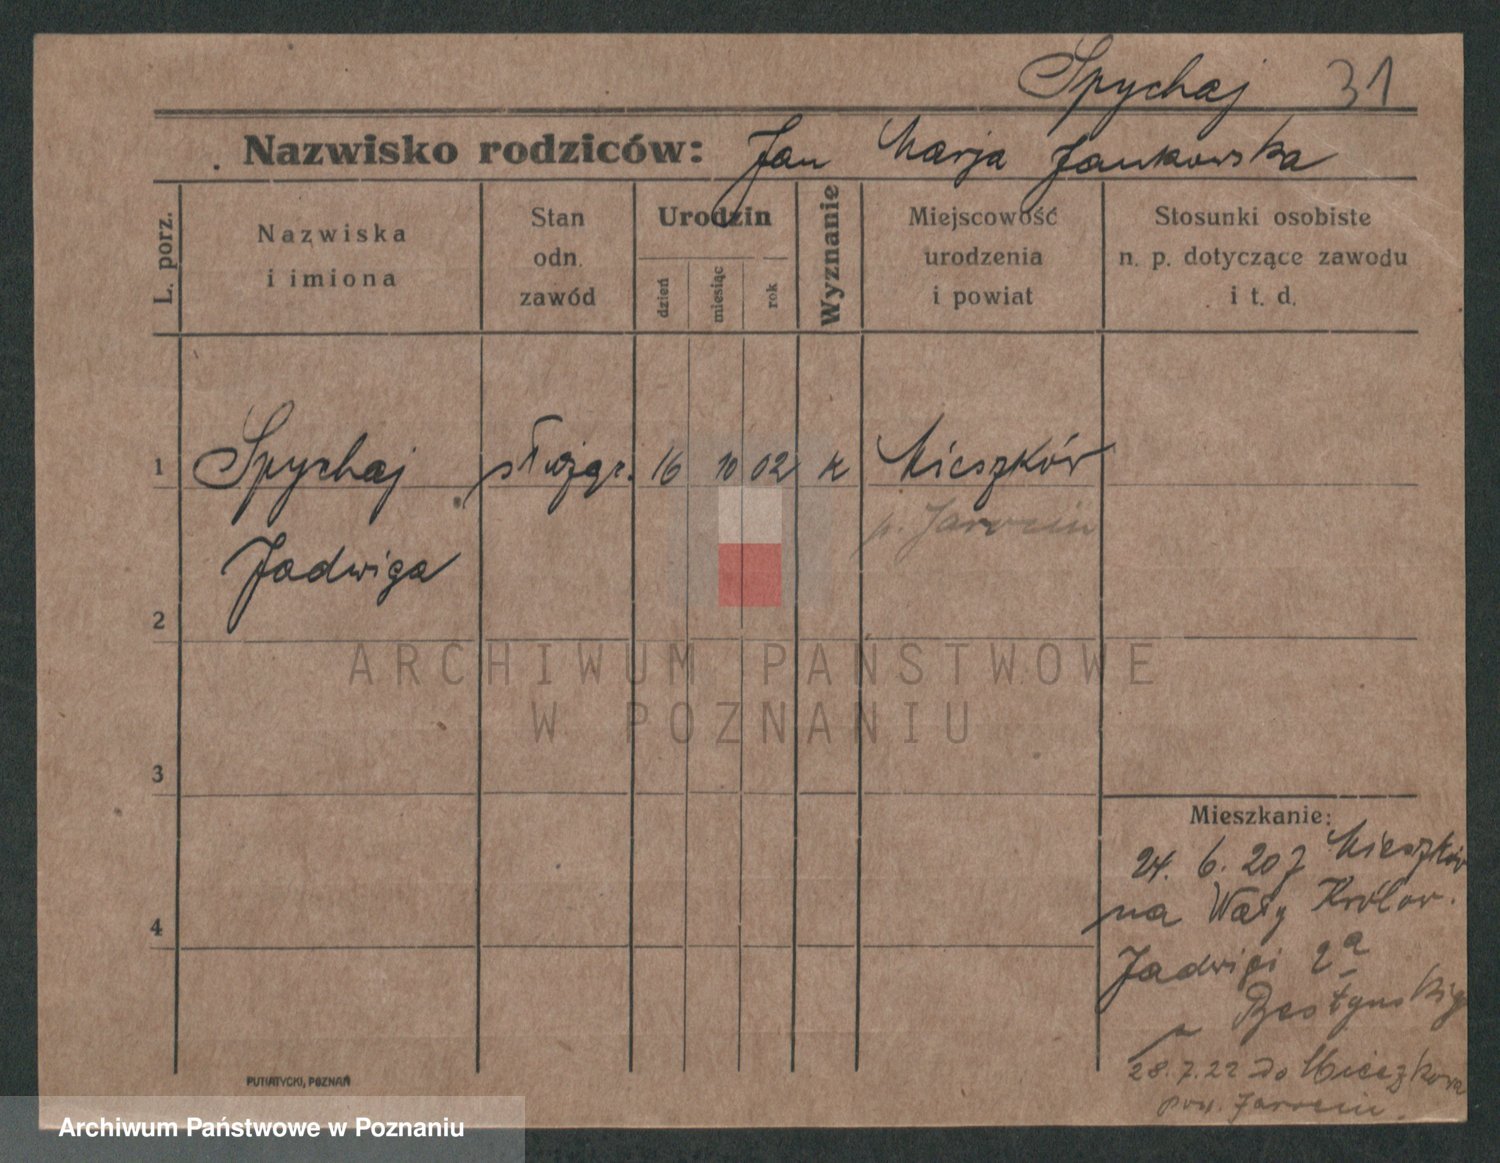 Spychaj 31
Nazwisko rodziców: Jan Marja Jankowska
L. porz.
Nazwiska
i imiona
Stan
odn.
zawód
Urodzin
dzień
miesiąc
rok
Wyznanie
Miejscowość
urodzenia
i powiat
Stosunki osobiste
n. p. dotyczące zawodu
i t. d.
1 Spychaj 16 10 02 k Mieszków
p. Jarocin
Jadwiga
2
ARCHIWUM PAŃSTWOWE
W POZNANIU
3
Mieszkanie:
24. 6. 20 z Mieszków
na Wały Królow.
4
Jadwigi 2a
28.7.22 do Mieszkowa
pow. Jarocin.
PUTIATYCKI, POZNAŃ
Archiwum Państwowe w Poznaniu